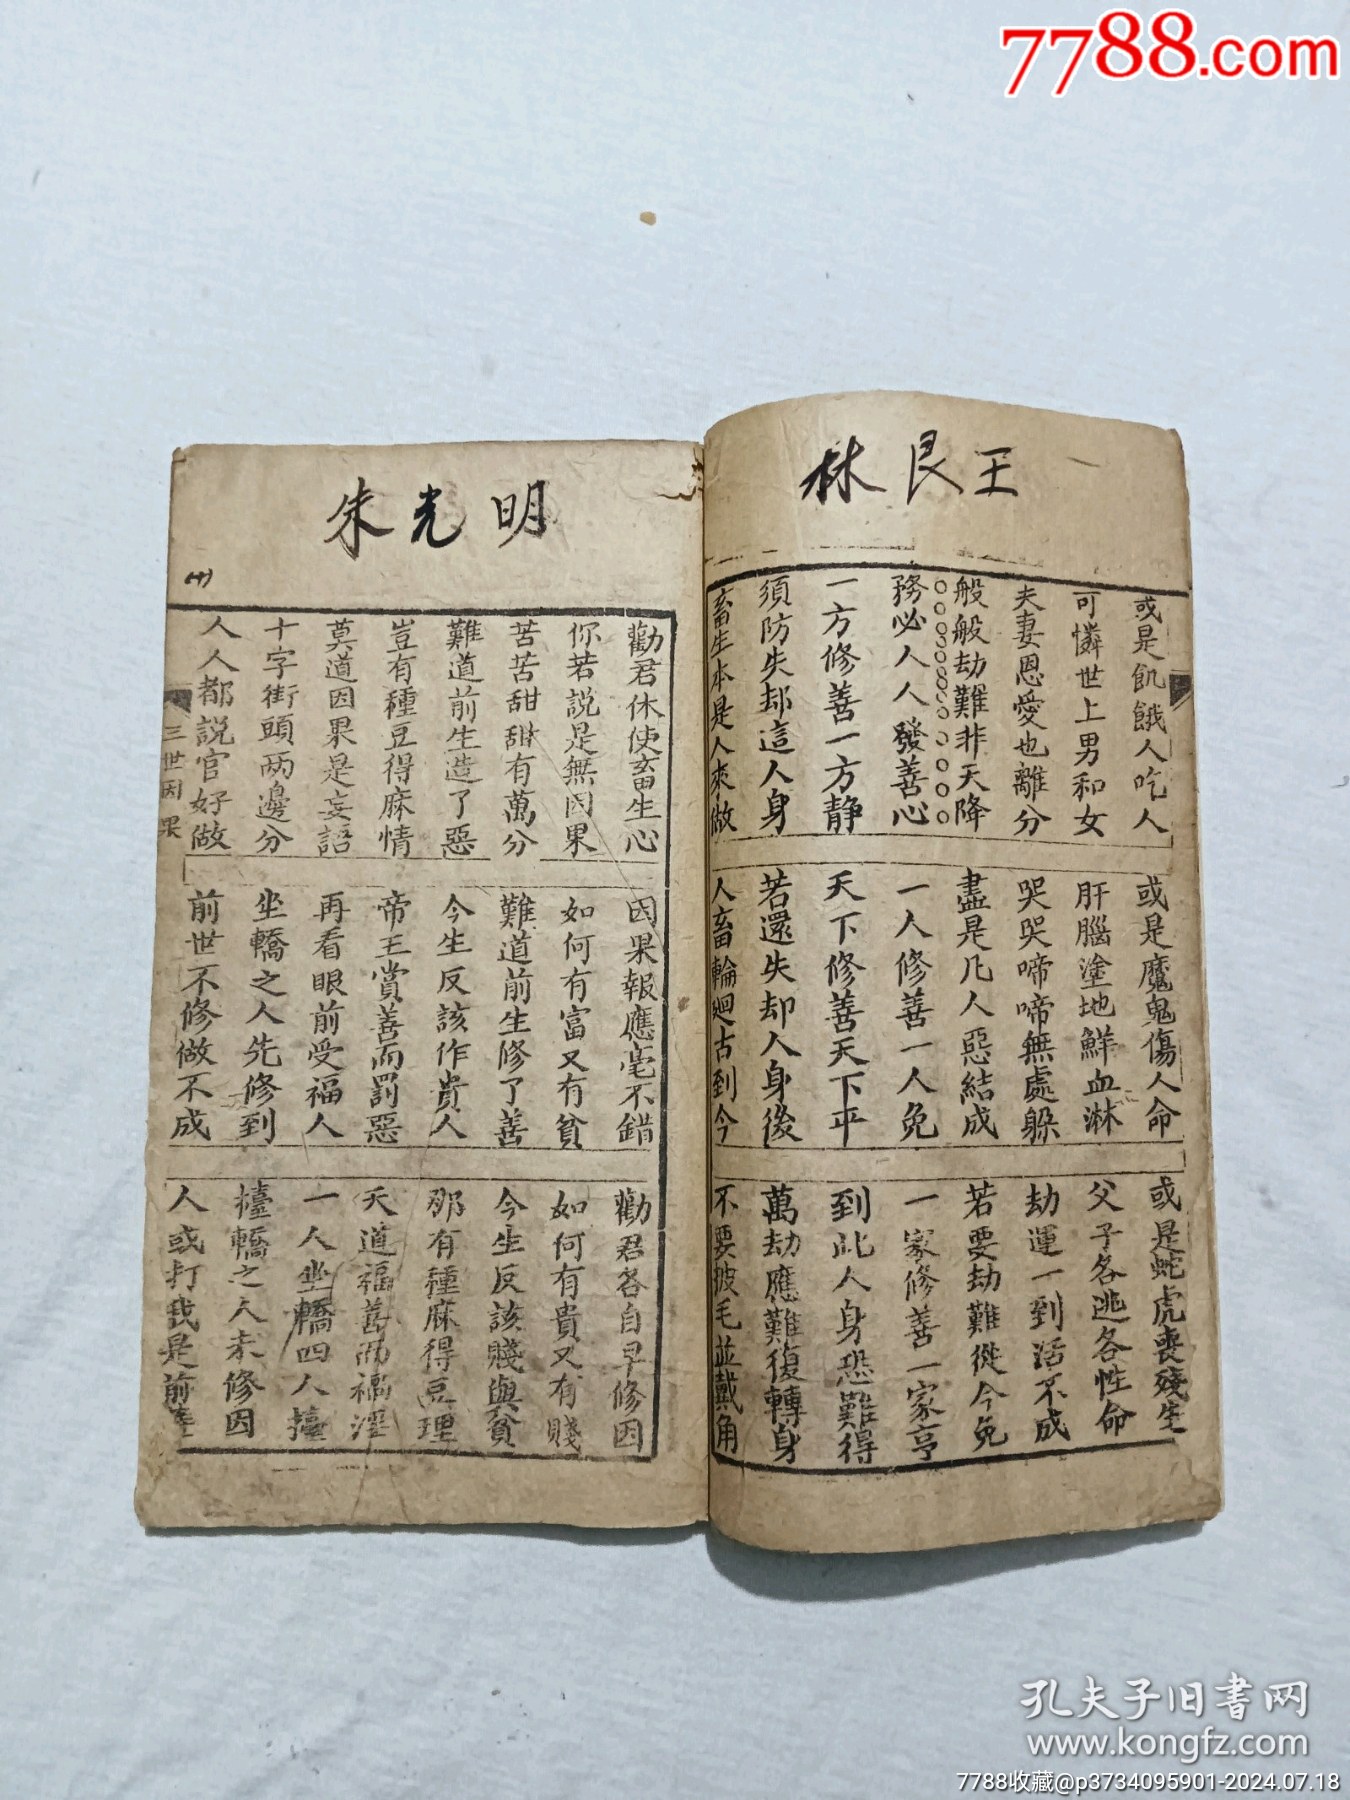 7788.com
林艮王
或是飢餓人吃人 或是魔鬼傷人命 或是蛇虎喪殘生
可憐世上男和女 肝腦塗地鮮血淋 父子各逃各性命
夫妻恩愛也離分 哭哭啼啼無處躲 劫運一到活不成
般般劫難非天降 盡是凡人惡結成 若要劫難從今免
務必人人發善心 一人修善一人免 一家修善一家亨
一方修善一方静 天下修善天下平 到此人身恐難得
須防失却這人身 若還失却人身後 萬劫應難復轉身
畜生本是人來做 人畜輪廻古到今 不要披毛並戴角
朱光明
勸君休使畜生心 因果報應毫不錯 勸君各自早修因
你若説是無因果 如何有富又有貧 如何有貴又有賤
苦苦甜甜有萬分 難道前生修了善 今生反該賤與貧
難道前生造了惡 今生反該作貴人 那有種麻得豆理
豈有種豆得麻情 帝王賞善而罰惡 天道福善而禍淫
莫道因果是妄語 再看眼前受福人 一人坐轎四人擡
十字街頭两邊分 坐轎之人先修到 擡轎之人未修因
人人都説官好做 前世不修做不成 人或打我是前
三世因果
孔夫子旧書网
www.kongfz.com
7788收藏@p3734095901-2024.07.18